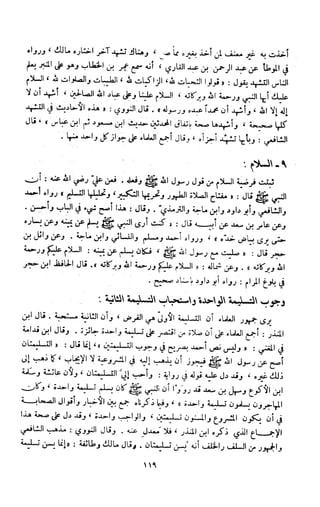 أخذت به غير معنف لمن أخذ بغيره مما صح، وهناك تشهد آخر اختاره مالك، ورواه
في الموطأ عن عبد الرحمن بن عبد القاري، أنه سمع عمر بن الخطاب وهو على المنبر يعلم
الناس التشهد يقول: «قولوا التحيات لله، الزاكيات لله، الطيبات والصلوات لله، السلام
عليك أيها النبي ورحمة الله وبركاته، السلام علينا وعلى عباد الله الصالحين، أشهد أن لا
إله إلا الله، وأشهد أن محمداً عبده ورسوله». قال النووي: هذه الأحاديث في التشهد
كلها صحيحة، وأشدها صحة باتفاق المحدثين حديث ابن مسعود ثم ابن عباس، قال
الشافعي: وبأيها تشهد أجزأه، وقال أجمع العلماء على جواز كل واحد منها.
٩ - السلام:
ثبتت فرضية السلام من قول رسول الله ﷺ وفعله. فعن علي رضي الله عنه: أن
النبي ﷺ قال: «مفتاح الصلاة الطهور وتحريمها التكبير، وتحليلها التسليم» رواه أحمد
والشافعي وأبو داود وابن ماجة والترمذي. وقال: هذا أصح شيء في الباب وأحسن.
وعن عامر بن سعد عن أبيه قال: «كنت أرى النبي ﷺ يسلم عن يمينه وعن يساره
حتى يرى بياض خده»، رواه أحمد ومسلم والنسائي وابن ماجة. وعن وائل بن
حجر قال: «صليت مع رسول الله ﷺ فكان يسلم عن يمينه: السلام عليكم ورحمة
الله وبركاته». وعن شماله: «السلام عليكم ورحمة الله وبركاته». قال الحافظ ابن حجر
في بلوغ المرام: رواه أبو داود بإسناد صحيح.
وجوب التسليمة الواحدة واستحباب التسليمة الثانية:
يرى جمهور العلماء أن التسليمة الأولى هي الفرض، وأن الثانية مستحبة. قال ابن
المنذر: أجمع العلماء على أن صلاة من اقتصر على تسليمة واحدة جائزة. وقال ابن قدامة
في المغني: «وليس نص أحمد بصريح في وجوب التسليمتين، إنما قال: «التسليمتان
أصح عن رسول الله ﷺ فيجوز أن يذهب إليه في المشروعية لا الإيجاب، كما ذهب إلى
ذلك غيره، وقد دل عليه قوله في رواية: وأحب إلي التسليمتان، ولأن عائشة وسلمة
ابن الأكوع وسهل بن سعد قد رووا أن النبي ﷺ كان يسلم تسليمة واحدة، وكان
المهاجرون يسلمون تسليمة واحدة»، وفيما ذكرناه جمع بين الأخبار وأقوال الصحابة
في أن يكون المشروع والمسنون تسليمتين، والواجب واحدة، وقد دل على صحة هذا
الإجماع الذي ذكره ابن المنذر، فلا معدل عنه. وقال النووي: مذهب الشافعي
والجمهور من السلف والخلف أنه يسن تسليمتان. وقال مالك وطائفة: «إنما يسن تسليمة
١١٩